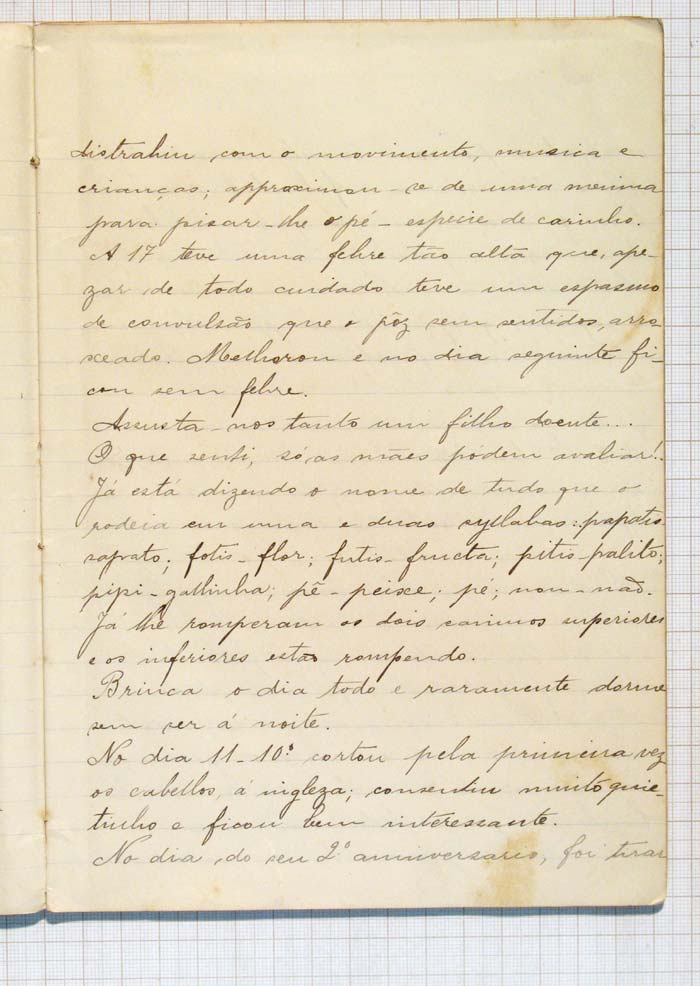 distrahiu com o movimento, musica e
crianças; approximou-se de uma menina
para pisar-lhe o pé - especie de carinho.
A 17 teve uma febre tão alta que, ape-
zar de todo cuidado teve um espasmo
de convulsão que o pôz sem sentidos, arro-
xeado. Melhorou e no dia seguinte fi-
cou sem febre.
Assusta-nos tanto um filho doente...
O que senti, só as mães pódem avaliar!..
Já está dizendo o nome de tudo que o
rodeia em uma e duas syllabas: papato
sapato; fotis-flor; futis-fructa; pitis-palito;
pipi-gallinha; pê-peixe; pé; non-não.
Já lhe romperam os dois caninos superiores
e os inferiores estão rompendo.
Brinca o dia todo e raramente dorme
sem ser á noite.
No dia 11-10º cortou pela primeira vez
os cabellos, á ingleza; consentiu muito quie-
tinho e ficou bem interessante.
No dia do seu 2º anniversario, foi tirar